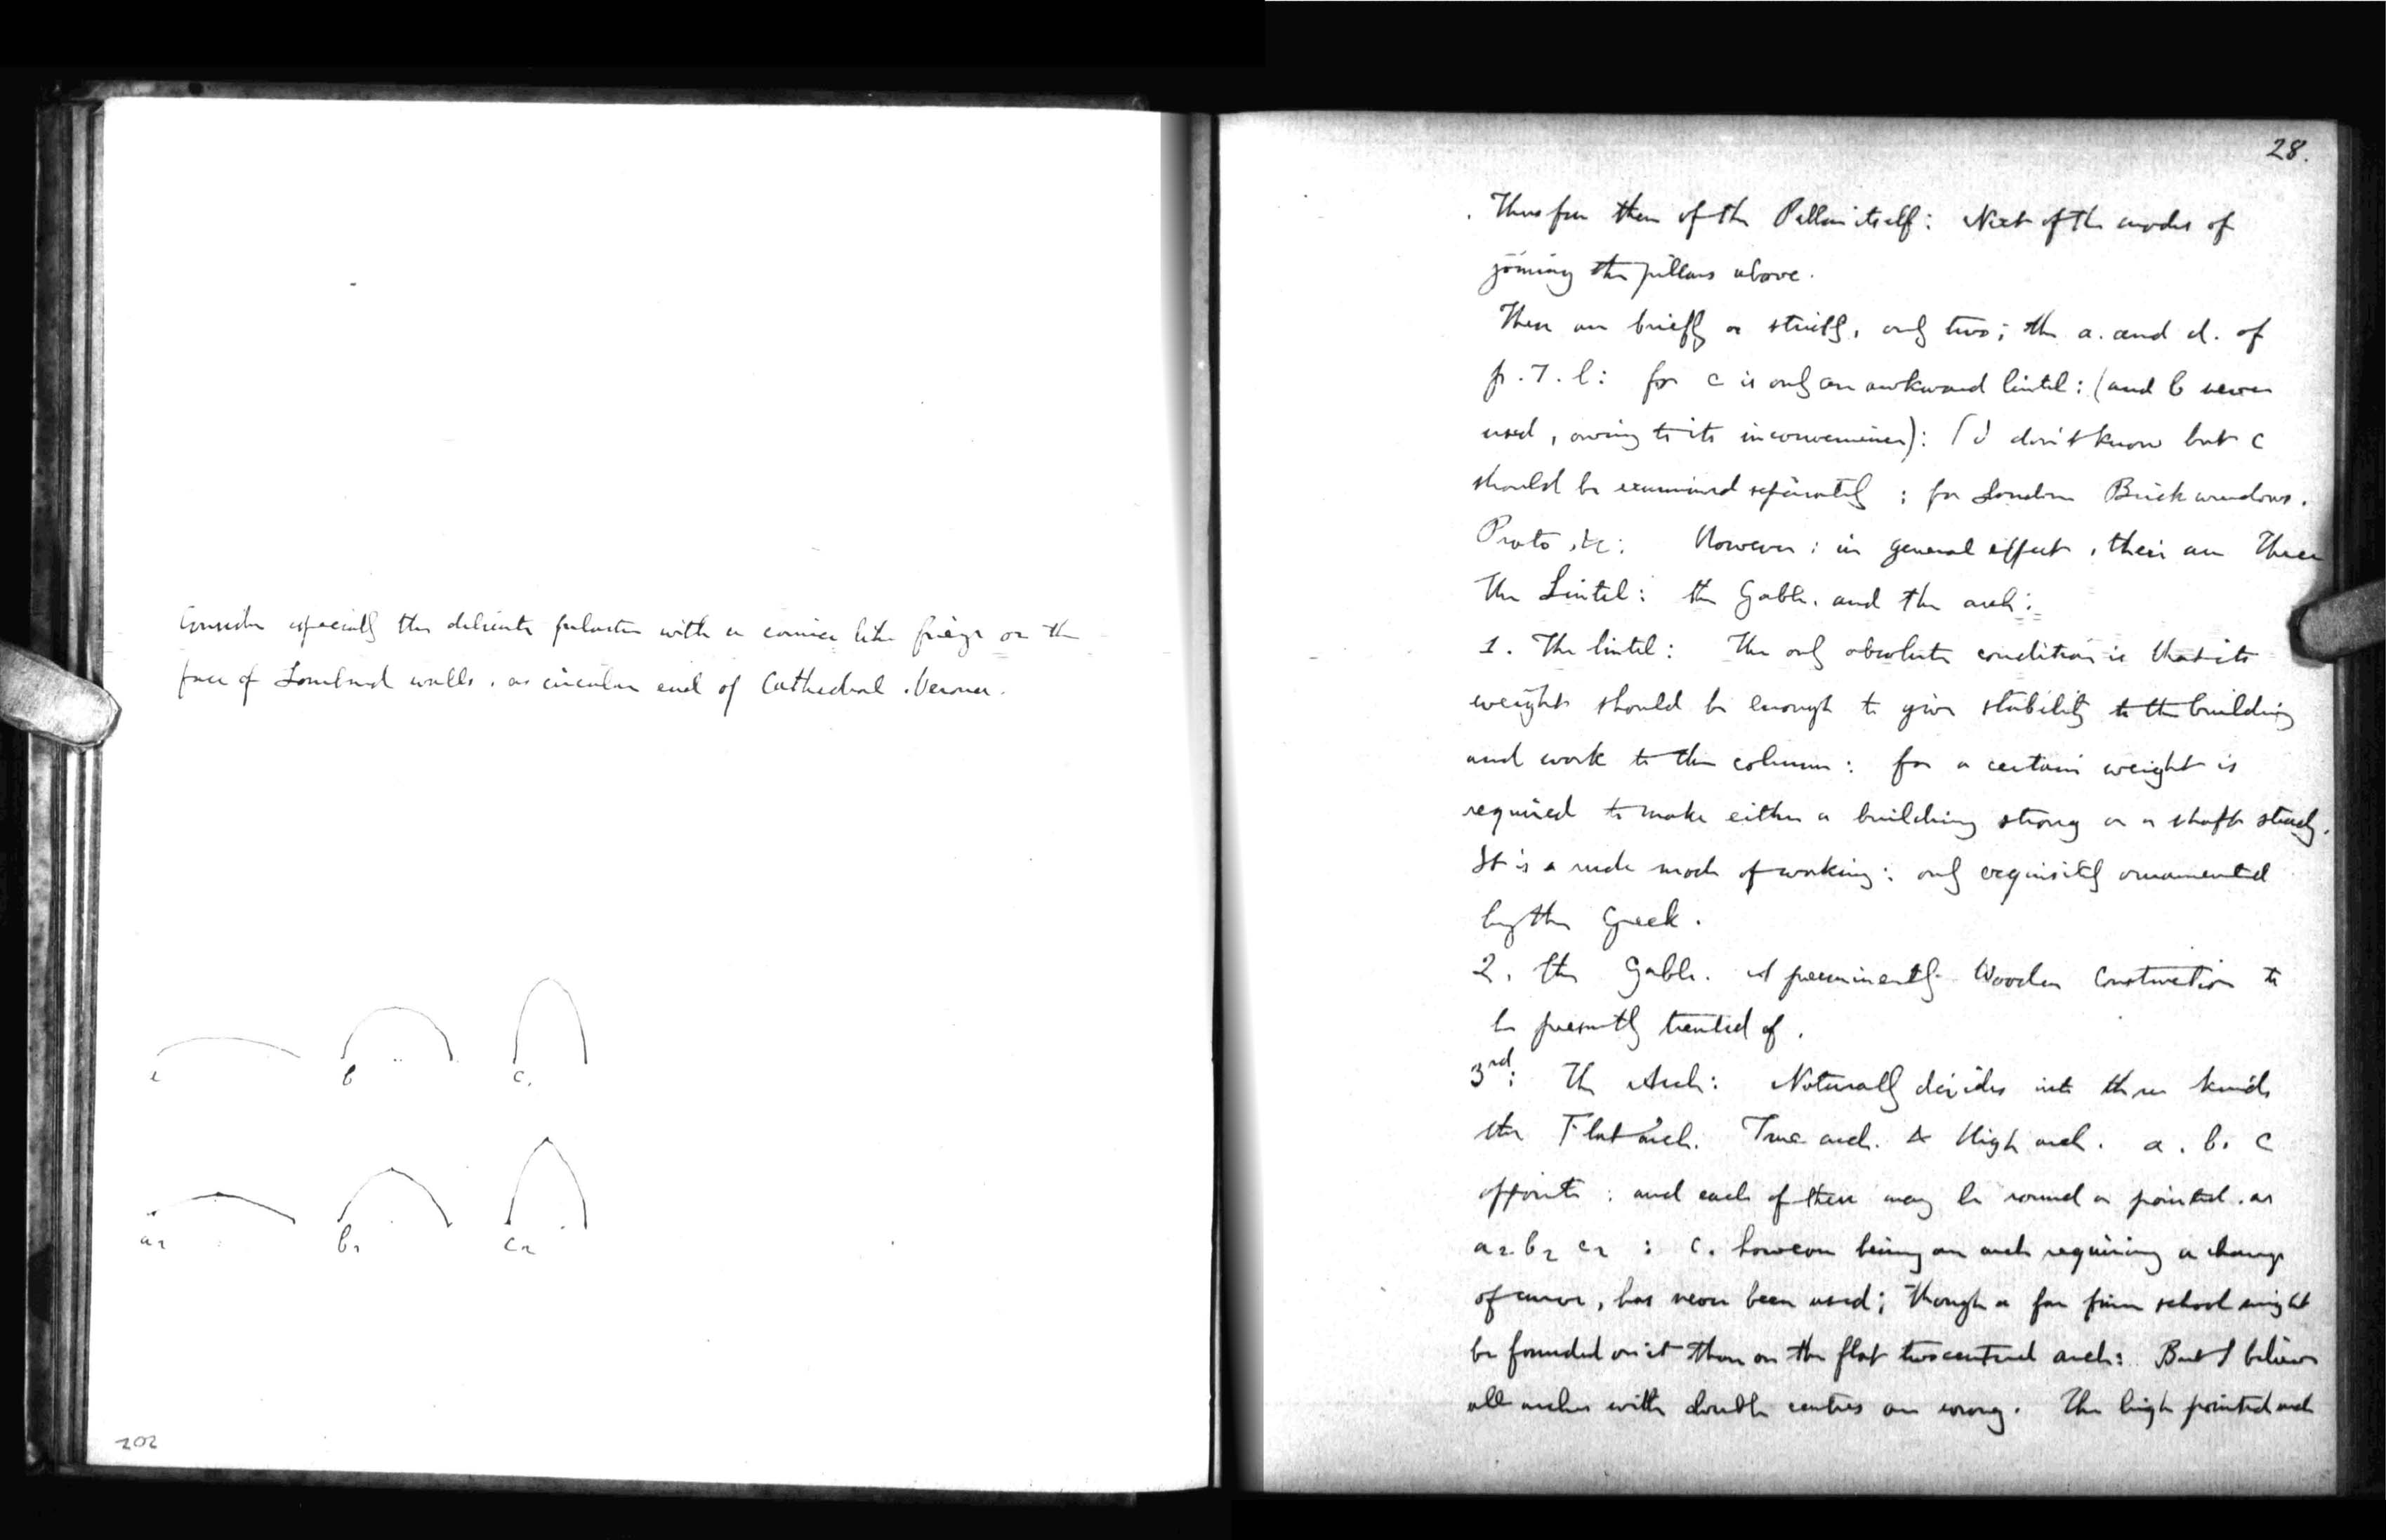 Consider especially the delicate pilaster with a cornice like frieze on the
face of Lombard walls. as circular end of Cathedral. Verona.
a b c.
a2 b2 c2
202
28.
Thus far then of the Pillar itself: Next of the modes of
joining the pillars above.
There are briefly or strictly, only two; the a. and d. of
p. 7. l: for c is only an awkward lintel: (and b never
used, owing to its inconvenience): I don't know but c
should be examined separately; for London Brick windows.
Prato, &c: However: in general effect, their are Three
The Lintel: the Gable. and the arch:
1. The lintel: The only absolute condition is that its
weight should be enough to give stability to the building
and work to the column: for a certain weight is
required to make either a building strong or a shaft steady.
It is a rude mode of working: only exquisitely ornamented
by the Greek.
2. The Gable. A preeminently Wooden Construction to
be presently treated of.
3rd: The Arch: Naturally divides into three kinds
the Flat arch. True arch. & High arch. a. b. c
opposite: and each of these may be round or pointed. as
a2. b2 c2: c. however being an arch requiring a change
of curve, has never been used; though a far finer school might
be founded on it than on the flat two centred arch: But I believe
all arches with double centres are wrong. The high pointed arch